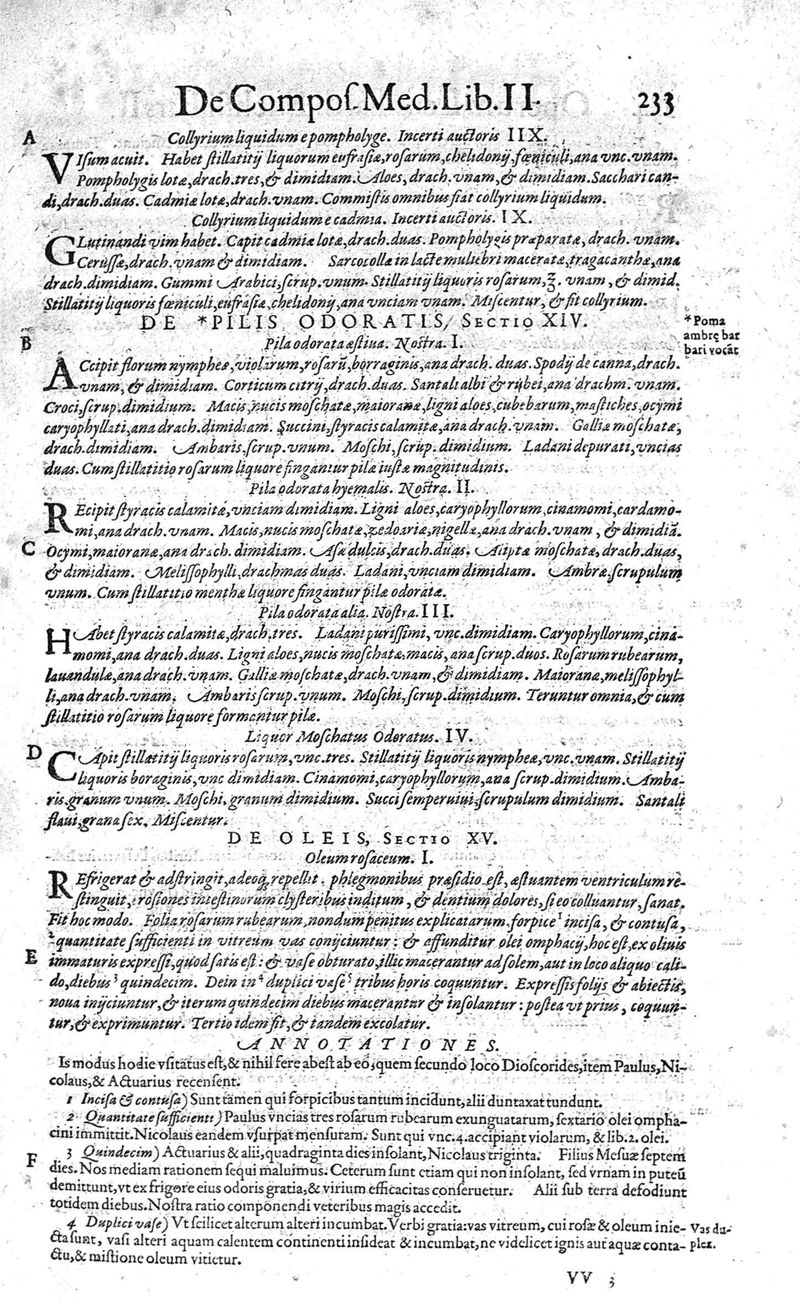 De Compoſ. Med. Lib. II.
233
A
Collyrium liquidum e pompholyge. Incerti auctoris IIX.
VIſum acuit. Habet ſtillatitij liquorum eufraſiæ, roſarum, chelidonij, fœniculi, ana vnc. vnam.
Pompholygis lotæ, drach. tres, & dimidiam. Aloes, drach. vnam, & dimidiam. Sacchari can-
di, drach. duas. Cadmiæ lotæ, drach. vnam. Commiſtis omnibus fiat collyrium liquidum.
Collyrium liquidum e cadmia. Incerti auctoris. IX.
GLutinandi vim habet. Capit cadmiæ lotæ, drach. duas. Pompholygis præparatæ, drach. vnam.
Ceruſſæ, drach. vnam & dimidiam. Sarcocollæ in lacte muliebri maceratæ, tragacanthæ, ana
drach. dimidiam. Gummi Arabici, ſcrup. vnum. Stillatitij liquoris roſarum, ℥. vnam, & dimid.
Stillatitij liquoris fœniculi, eufraſiæ, chelidonij, ana vnciam vnam. Miſcentur, & fit collyrium.
DE *PILIS ODORATIS, SECTIO XIV.
*Poma
ambrę bar
bari vocāt
B
Pila odorata æſtiua. Noſtra. I.
ACcipit florum nympheæ, violarum, roſarū, borraginis, ana drach. duas. Spodij de canna, drach.
vnam, & dimidiam. Corticum citrij, drach. duas. Santali albi & rubei, ana drachm. vnam.
Croci, ſcrup. dimidium. Macis, nucis moſchatæ, maioranæ, ligni aloes, cubebarum, maſtiches, ocymi
caryophyllati, ana drach. dimidiam. Succini, ſtyracis calamitæ, ana drach. vnam. Galliæ moſchatæ,
drach. dimidiam. Ambaris, ſcrup. vnum. Moſchi, ſcrup. dimidium. Ladani depurati, vncias
duas. Cum ſtillatitio roſarum liquore fingantur pilæ iuſtæ magnitudinis.
Pila odorata hyemalis. Noſtra. II.
REcipit ſtyracis calamitæ, vnciam dimidiam. Ligni aloes, caryophyllorum, cinamomi, cardamo-
mi, ana drach. vnam. Macis, nucis moſchatæ, zedoariæ, nigellæ, ana drach. vnam, & dimidiā.
C
Ocymi, maioranæ, ana drach. dimidiam. Aſæ dulcis, drach. duas. Aliptæ moſchatæ, drach. duas,
& dimidiam. Meliſſophylli, drachmas duas. Ladani, vnciam dimidiam. Ambræ, ſcrupulum
vnum. Cum ſtillatitio menthæ liquore fingantur pilæ odoratæ.
Pila odorata alia. Noſtra. III.
HAbet ſtyracis calamitæ, drach. tres. Ladani puriſſimi, vnc. dimidiam. Caryophyllorum, cina-
momi, ana drach. duas. Ligni aloes, nucis moſchatæ, macis, ana ſcrup. duos. Roſarum rubearum,
lauandulæ, ana drach. vnam. Galliæ moſchatæ, drach. vnam, & dimidiam. Maioranæ, meliſſophyl-
li, ana drach. vnam. Ambaris ſcrup. vnum. Moſchi, ſcrup. dimidium. Teruntur omnia, & cum
ſtillatitio roſarum liquore formantur pilæ.
Liquor Moſchatus Odoratus. IV.
D
CApit ſtillatitij liquoris roſarum, vnc. tres. Stillatitij liquoris nympheæ, vnc. vnam. Stillatitij
liquoris boraginis, vnc dimidiam. Cinamomi, caryophyllorum, ana ſcrup. dimidium. Amba-
ris, granum vnum. Moſchi, granum dimidium. Succi ſemperuiui, ſcrupulum dimidium. Santali
flaui, grana ſex. Miſcentur.
DE OLEIS, SECTIO XV.
Oleum roſaceum. I.
REfrigerat & adſtringit, adeoq́; repellit, phlegmonibus præſidio eſt, æſtuantem ventriculum re-
ſtinguit, eroſiones inteſtinorum clyſteribus inditum, & dentium dolores, ſi eo colluantur, ſanat.
Fit hoc modo. Folia roſarum rubearum, nondum penitus explicatarum, forpice 1 inciſa, & contuſa,
2 quantitate ſufficienti in vitreum vas conijciuntur: & affunditur olei omphacij, hoc eſt, ex oliuis
E
immaturis expreſſi, quod ſatis eſt: & vaſe obturato, illic macerantur ad ſolem, aut in loco aliquo cali-
do, diebus 3 quindecim. Dein in 4 duplici vaſe tribus horis coquuntur. Expreſſis folijs & abiectis,
noua inijciuntur, & iterum quindecim diebus macerantur & inſolantur: poſtea vt prius, coquun-
tur, & exprimuntur. Tertio idem fit, & tandem excolatur.
ANNOTATIONES.
Is modus hodie vſitatus eſt, & nihil fere abeſt ab eo, quem ſecundo loco Dioſcorides, item Paulus, Ni-
colaus, & Actuarius recenſent.
1 Inciſa & contuſa) Sunt tamen qui forpicibus tantum incidunt, alii duntaxat tundunt.
2 Quantitate ſufficienti) Paulus vncias tres roſarum rubearum exunguatarum, ſextario olei ompha-
cini immittit. Nicolaus eandem vſurpat menſuram. Sunt qui vnc. 4. accipiant violarum, & lib. 2. olei.
3 Quindecim) Actuarius & alii, quadraginta dies inſolant, Nicolaus triginta. Filius Meſuæ ſeptem
F
dies. Nos mediam rationem ſequi maluimus: Ceterum ſunt etiam qui non inſolant, ſed vrnam in puteū
demittunt, vt ex frigore eius odoris gratia, & virium efficacitas conſeruetur. Alii ſub terra defodiunt
totidem diebus. Noſtra ratio componendi veteribus magis accedit.
4 Duplici vaſe) Vt ſcilicet alterum alteri incumbat. Verbi gratia: vas vitreum, cui roſæ & oleum inie-
cta ſunt, vaſi alteri aquam calentem continenti inſideat & incumbat, ne videlicet ignis aut aquæ conta-
ctu, & miſtione oleum vitietur.
Vas du-
plex.
VV 3